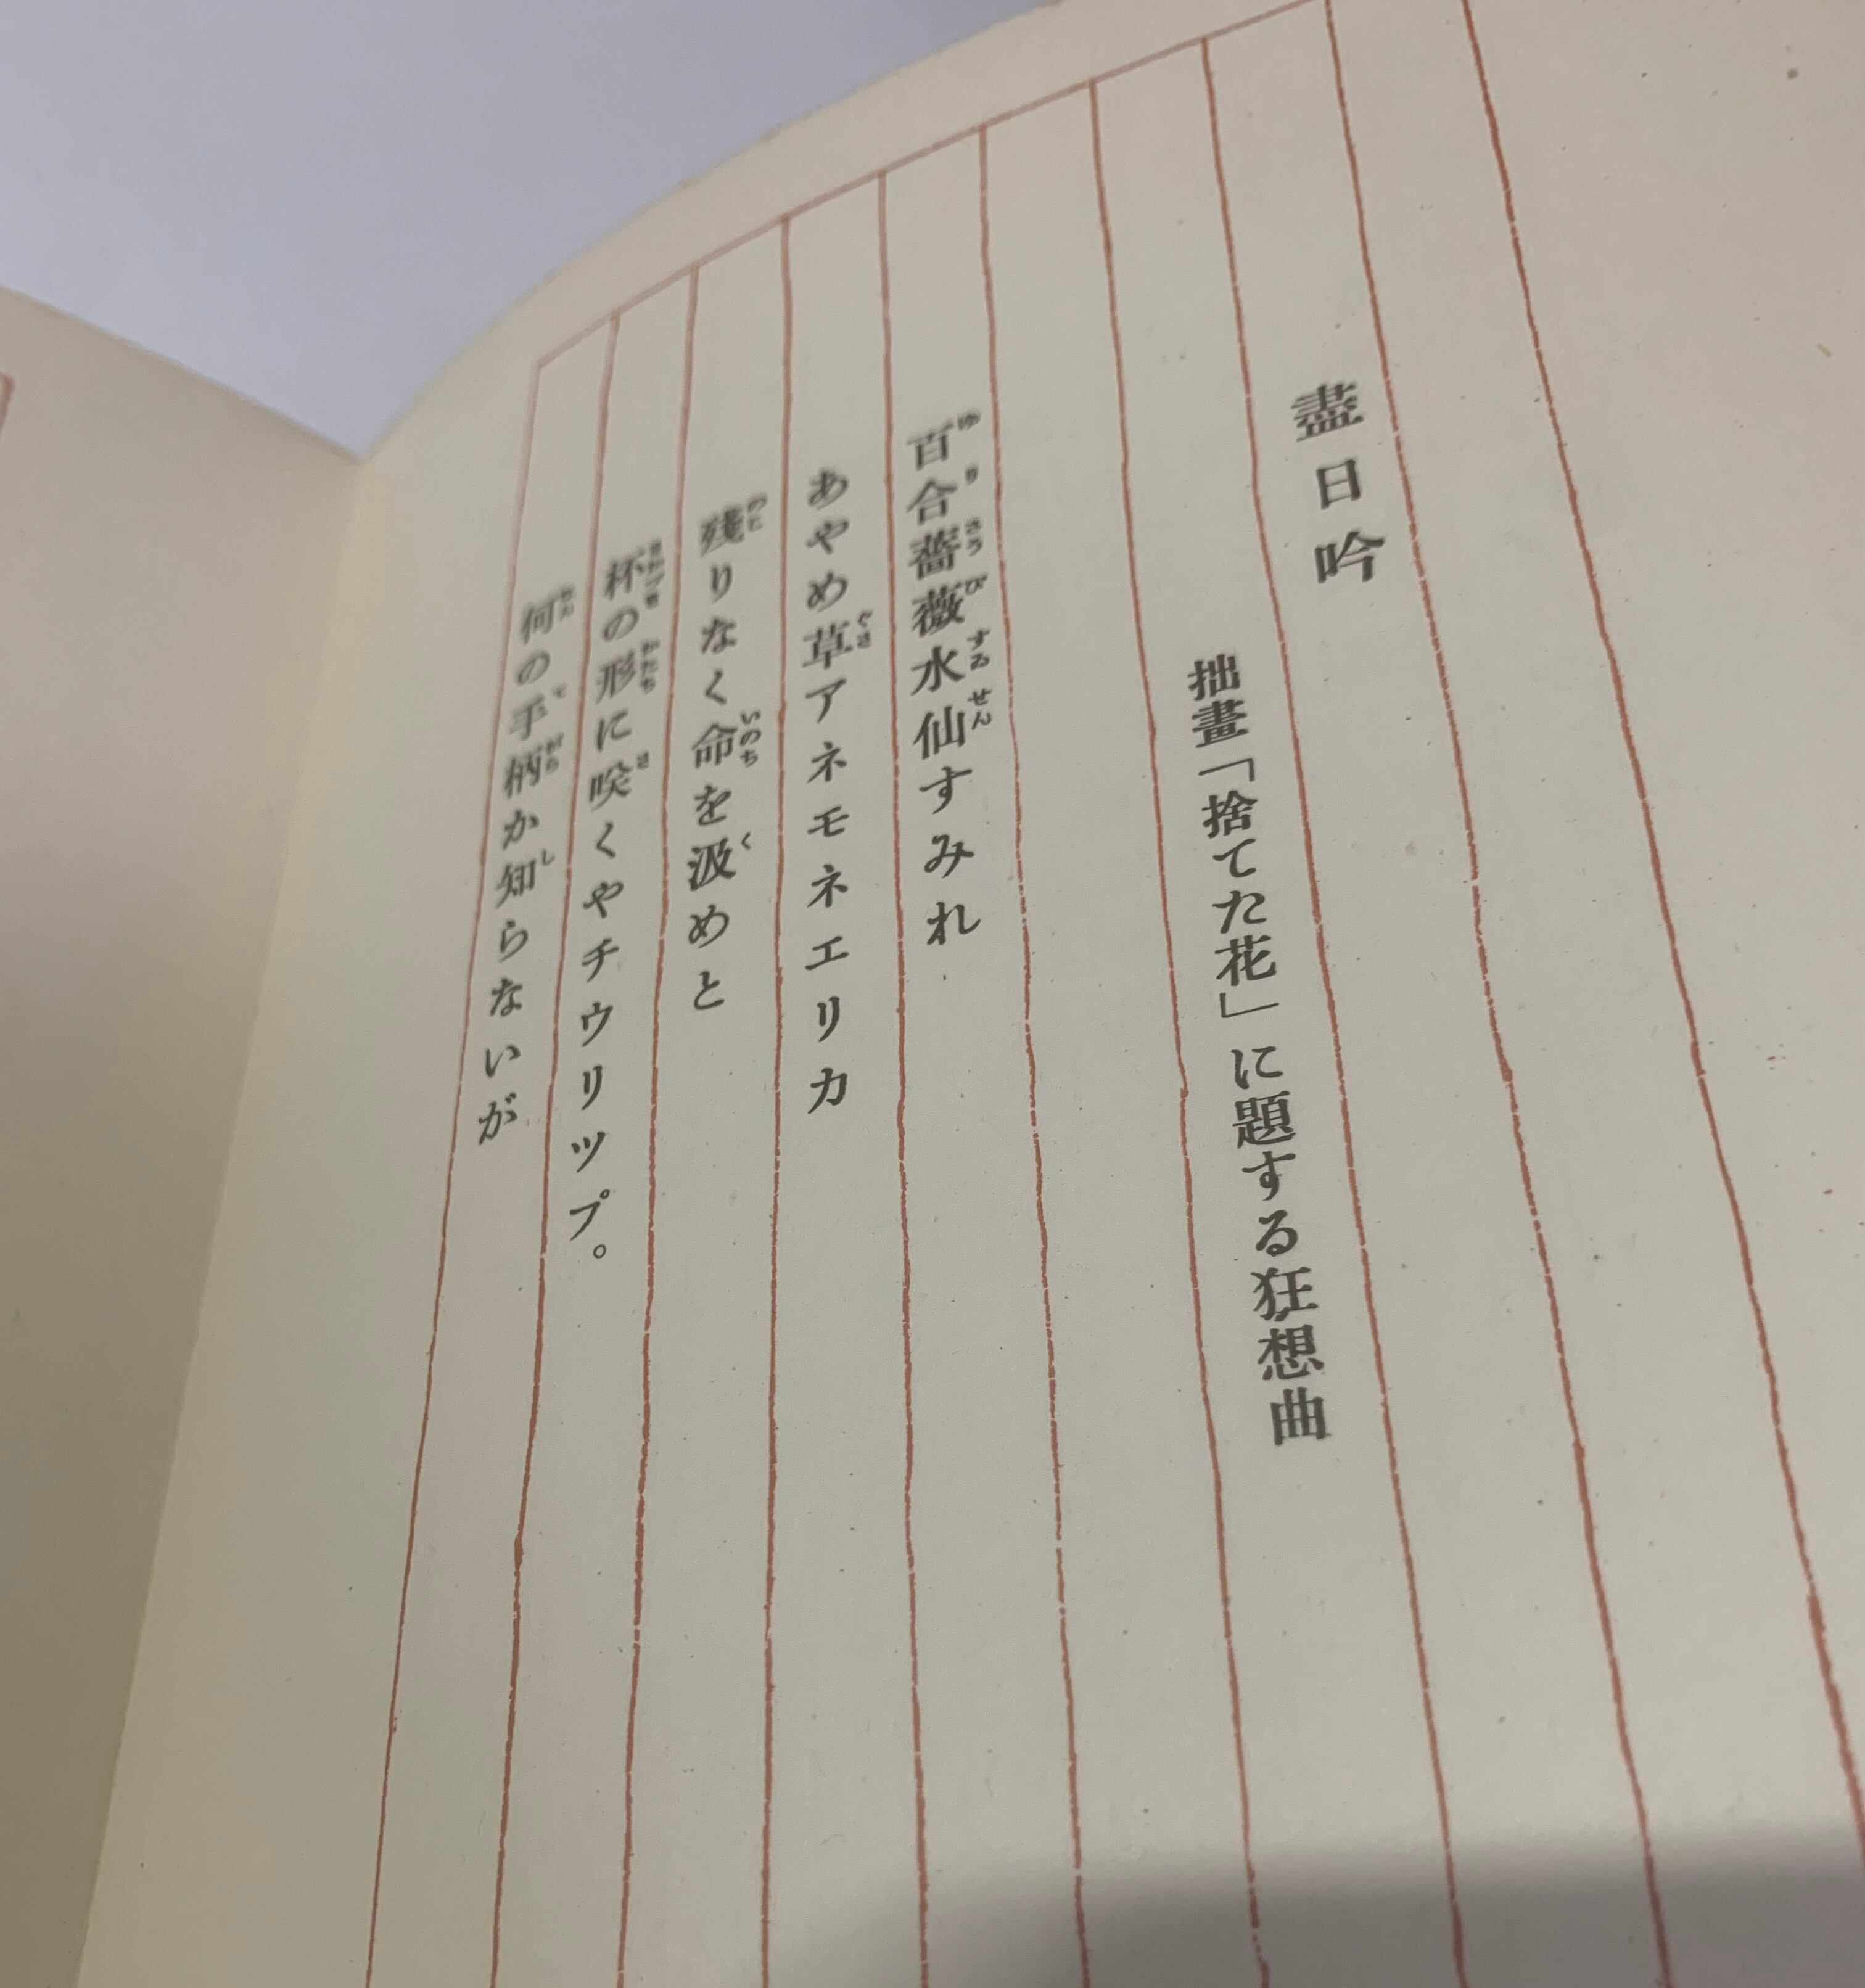 盡日吟
拙畫「捨てた花」に題する狂想曲
百合薔薇水仙すみれ
あやめ草アネモネエリカ
残りなく命を汲めと
杯の形に咲くやチウリツプ。
何の手柄か知らないが